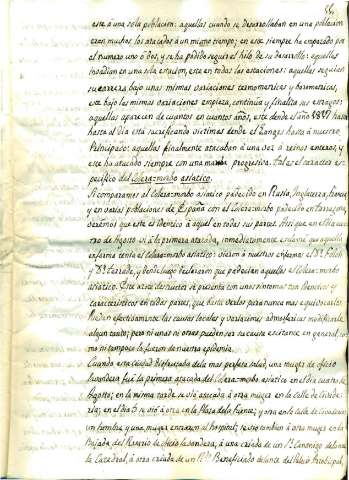 este á una sola poblacion: aquellas cuando se desarrollaban en una poblacion
eran muchos los atacados á un mismo tiempo; en este siempre ha empezado por
el numero uno ó dos, y se ha podido seguir el hilo de su desarrollo: aquellas
invadian en una sola estacion, este en todas las estaciones: aquellas seguian
su carrera bajo unas mismas variaciones termometricas y barometricas,
este bajo las mismas variaciones empieza, continúa y finaliza sus estragos:
aquellas aparecen de cuantos en cuantos años, este desde el año 1817 hasta
hasta el dia está sacrificando victimas desde el Ganges hasta á nuestro
Principado: aquellas finalmente atacaban á una vez á reinos enteros, y
este ha atacado siempre con una marcha progresiva. Tal es el caracter es-
pecifico del Colera-morbo asiatico.
Si comparamos al Colera-morbo asiatico padecido en Rusia, Inglaterra, Francia
y en varias poblaciones de España con el Colera-morbo padecido en Tarragona,
veremos que este es identico á aquel en todas sus partes. Asi que en el dia cua-
tro de Agosto vi á la primera atacada, inmediatamente espuse que aquella
enferma tenia el Colera-morbo asiatico: vieron á nuestra enferma el Dr.
y Dr. y desde luego declararon que padecian aquellas el Colera-morbo
asiatico. Este azote destructor se presenta con unos sintomas tan identicos y
caracteristicos en todas partes, que basta verlos para nunca mas equivocarlos.
Pueden efectivamente las causas locales y variaciones atmosfericas modificarle
algun tanto; pero ni unas ni otras pueden ser su causa escitante en general, co-
mo ni tampoco lo fueron de nuestra epidemia.
Cuando esta ciudad disfrutaba de la mas perfeta salud, una muger de oficio
lavandera fué la primera atacada del Colera-morbo asiatico en el dia cuatro de
Agosto; en la misma tarde se vió atacada á otra muger en la calle de
en el dia 5 se vió á otra en la Plaza de la Fuente; y otra en la calle de
un hombre y una muger entraron al hospital; se vió tambien á otra muger en la
Bajada del Rosario de oficio lavandera, á una criada de un Sr. Canonigo delante
la Catedral, á otra criada de un Beneficiado delante del Palacio Arzobispal,